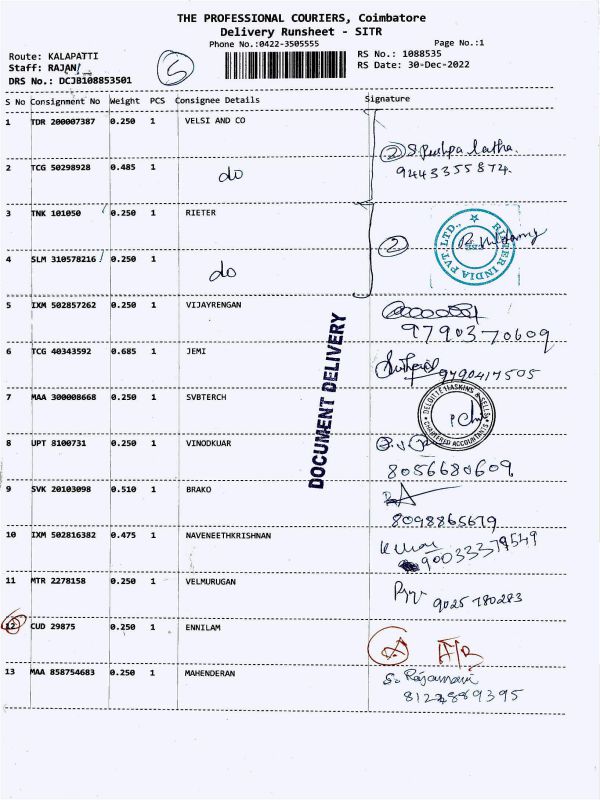 THE PROFESSIONAL COURIERS, Coimbatore
Delivery Runsheet - SITR
Phone No.:0422-3505555 Page No.:1
Route: KALAPATTI RS No.: 1088535
Staff: RAJAN RS Date: 30-Dec-2022
DRS No.: DCJB108853501
5
S No Consignment No Weight PCS Consignee Details Signature
1 TDR 200007387 0.250 1 VELSI AND CO
2 S. Pushpa Latha.
2 TCG 50298928 0.485 1 do 9443355874
3 TNK 101050 0.250 1 RIETER
2 RIETER INDIA PVT. LTD.,
4 SLM 310578216 0.250 1 do
5 IXM 502857262 0.250 1 VIJAYRENGAN
9790370609
6 TCG 40343592 0.685 1 JEMI
9790417505
7 MAA 300008668 0.250 1 SVBTERCH
DELOITTE HASKINS & SELLS CHARTERED ACCOUNTANTS
DOCUMENT DELIVERY
8 UPT 8100731 0.250 1 VINODKUAR
8056680609
9 SVK 20103098 0.510 1 BRAKO
8098865679
10 IXM 502816382 0.475 1 NAVENEETHKRISHNAN
Kumar
90033378549
11 MTR 2278158 0.250 1 VELMURUGAN
9025780283
12 CUD 29875 0.250 1 ENNILAM
A A/B
13 MAA 858754683 0.250 1 MAHENDERAN
8122889395